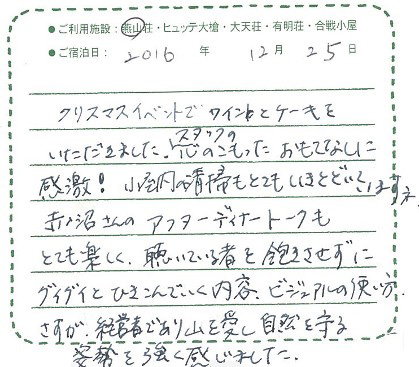 ●ご利用施設：燕山荘・ヒュッテ大槍・大天荘・有明荘・合戦小屋
●ご宿泊日：2016年12月25日
クリスマスイベントでワインとケーキを
いただきました。スタッフの心のこもったおもてなしに
感激！小屋内の清掃もとてもしほどいていますネ
赤沼さんのアフターディナートークも
とても楽しく、聴いている者を飽きさせずに
グイグイとひきこんでいく内容、ビジュアルの使い方、
さすが、経営者であり山を愛し自然を守る
姿勢を強く感じました。